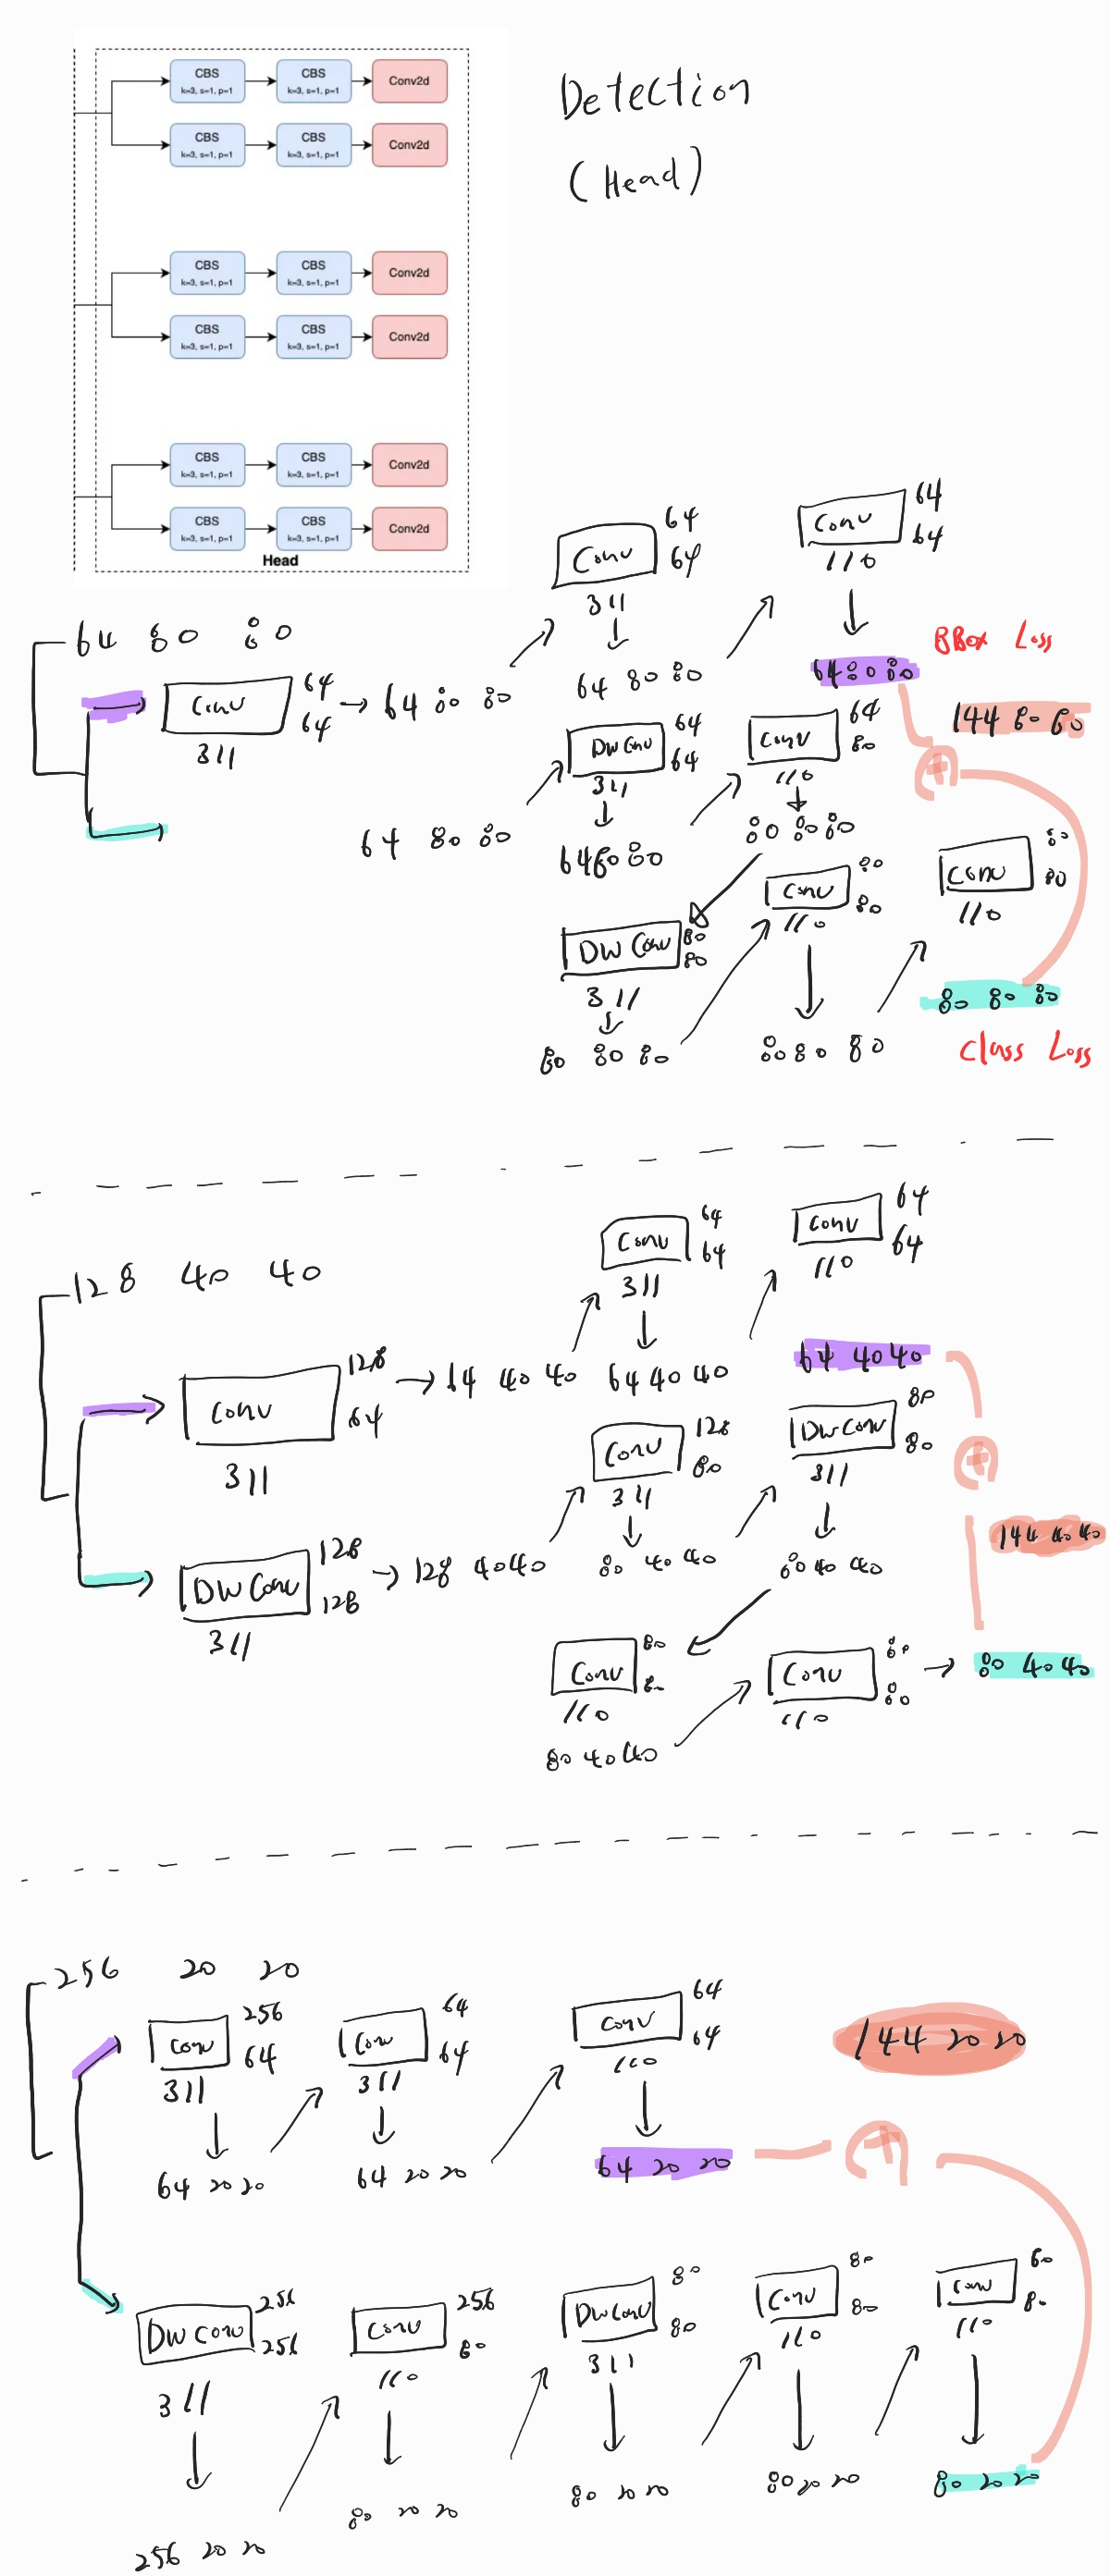 CBS CBS Conv2d
k=3, s=1, p=1 k=3, s=1, p=1
CBS CBS Conv2d
k=3, s=1, p=1 k=3, s=1, p=1
CBS CBS Conv2d
k=3, s=1, p=1 k=3, s=1, p=1
CBS CBS Conv2d
k=3, s=1, p=1 k=3, s=1, p=1
CBS CBS Conv2d
k=3, s=1, p=1 k=3, s=1, p=1
CBS CBS Conv2d
k=3, s=1, p=1 k=3, s=1, p=1
Head
Detection
(Head)
64 80 80
Conv 64
64
311
64 80 80
Conv 64
64
311
64 80 80
Conv 64
64
110
64 80 80
BBox Loss
144 80 80
+
64 80 80
DW Conv 64
64
311
64 80 80
Conv 64
80
110
80 80 80
DW Conv 80
80
311
80 80 80
Conv 80
80
110
80 80 80
Conv 80
80
110
80 80 80
Class Loss
128 40 40
Conv 128
64
311
64 40 40
Conv 64
64
311
64 40 40
Conv 64
64
110
64 40 40
+
144 40 40
DW Conv 128
128
311
128 40 40
Conv 128
80
311
80 40 40
DW Conv 80
80
311
80 40 40
Conv 80
80
110
80 40 40
Conv 80
80
110
80 40 40
256 20 20
Conv 256
64
311
64 20 20
Conv 64
64
311
64 20 20
Conv 64
64
110
64 20 20
144 20 20
+
DW Conv 256
256
311
256 20 20
Conv 256
80
110
80 20 20
DW Conv 80
80
311
80 20 20
Conv 80
80
110
80 20 20
Conv 80
80
110
80 20 20